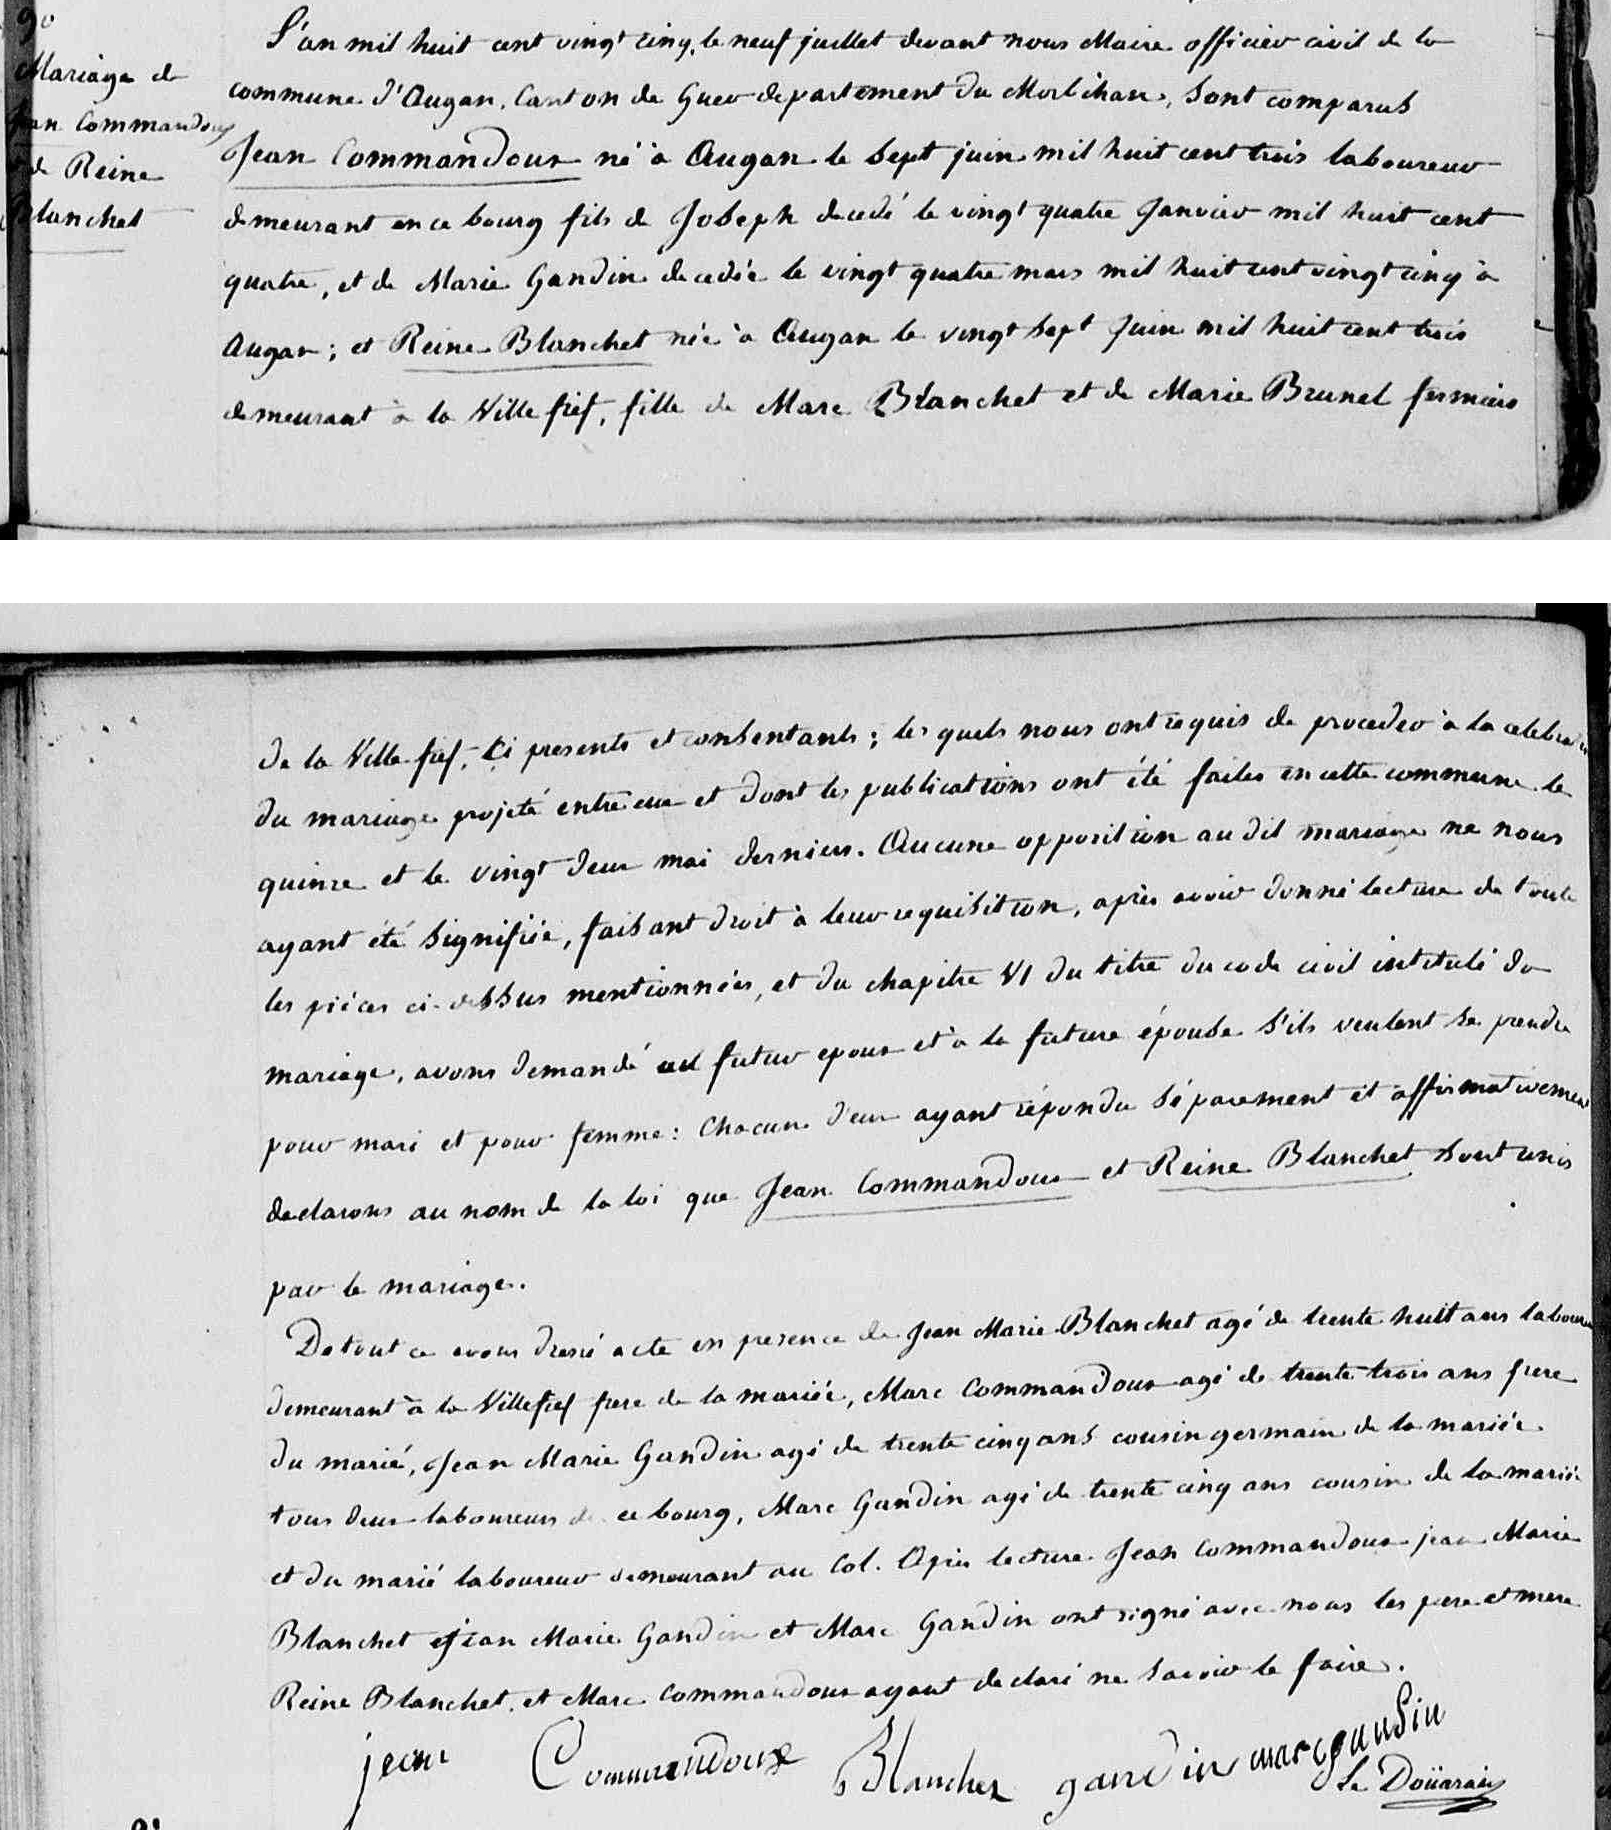 9º
Mariage de
Jean Commandoux
et de Reine
Blanchet
L'an mil huit cent vingt cinq, le neuf juillet devant nous Maire officier civil de la
commune d'Augan, Canton de Guer departement du Morbihan, sont comparus
Jean Commandoux né à Augan le sept juin mil huit cent trois laboureur
demeurant en ce bourg fils de Joseph decedé le vingt quatre Janvier mil huit cent
quatre, et de Marie Gandin decedée le vingt quatre mars mil huit cent vingt cinq à
Augan ; et Reine Blanchet née à Augan le vingt sept Juin mil huit cent trois
demeurant à la Ville fief, fille de Marc Blanchet et de Marie Brunel fermiers
de la Ville fief, Ci presents et consentants ; les quels nous ont requis de proceder à la celebration
du mariage projeté entre eux et dont les publications ont été faites en cette commune le
quinze et le vingt deux mai dernier. Aucune opposition au dit mariage ne nous
ayant été signifiée, faisant droit à leur requisition, après avoir donné lecture de toute
les pièces ci-dessus mentionnées, et du chapitre VI du titre du code civil intitulé du
mariage, avons demandé au futur epoux et à la future épouse s'ils veulent se prendre
pour mari et pour femme : Chacun d'eux ayant répondu séparement et affirmativement
declarons au nom de la loi que Jean Commandoux et Reine Blanchet sont unis
par le mariage.
De tout ce avons dressé acte en presence de Jean Marie Blanchet agé de trente huit ans laboureur
demeurant à la Villefief frere de la mariée, Marc Commandoux agé de trente trois ans frere
du marié, Jean Marie Gandin agé de trente cinq ans cousin germain de la mariée
tous deux laboureurs de ce bourg, Marc Gandin agé de trente cinq ans cousin de la mariée
et du marié laboureur demeurant au Col. Après lecture Jean Commandoux jean Marie
Blanchet Jean Marie Gandin et Marc Gandin ont signé avec nous les pere et mere
Reine Blanchet, et Marc Commandoux ayant declaré ne savoir le faire.
jean Commandoux Blanchet gandin marc gandin
Le Doüarain